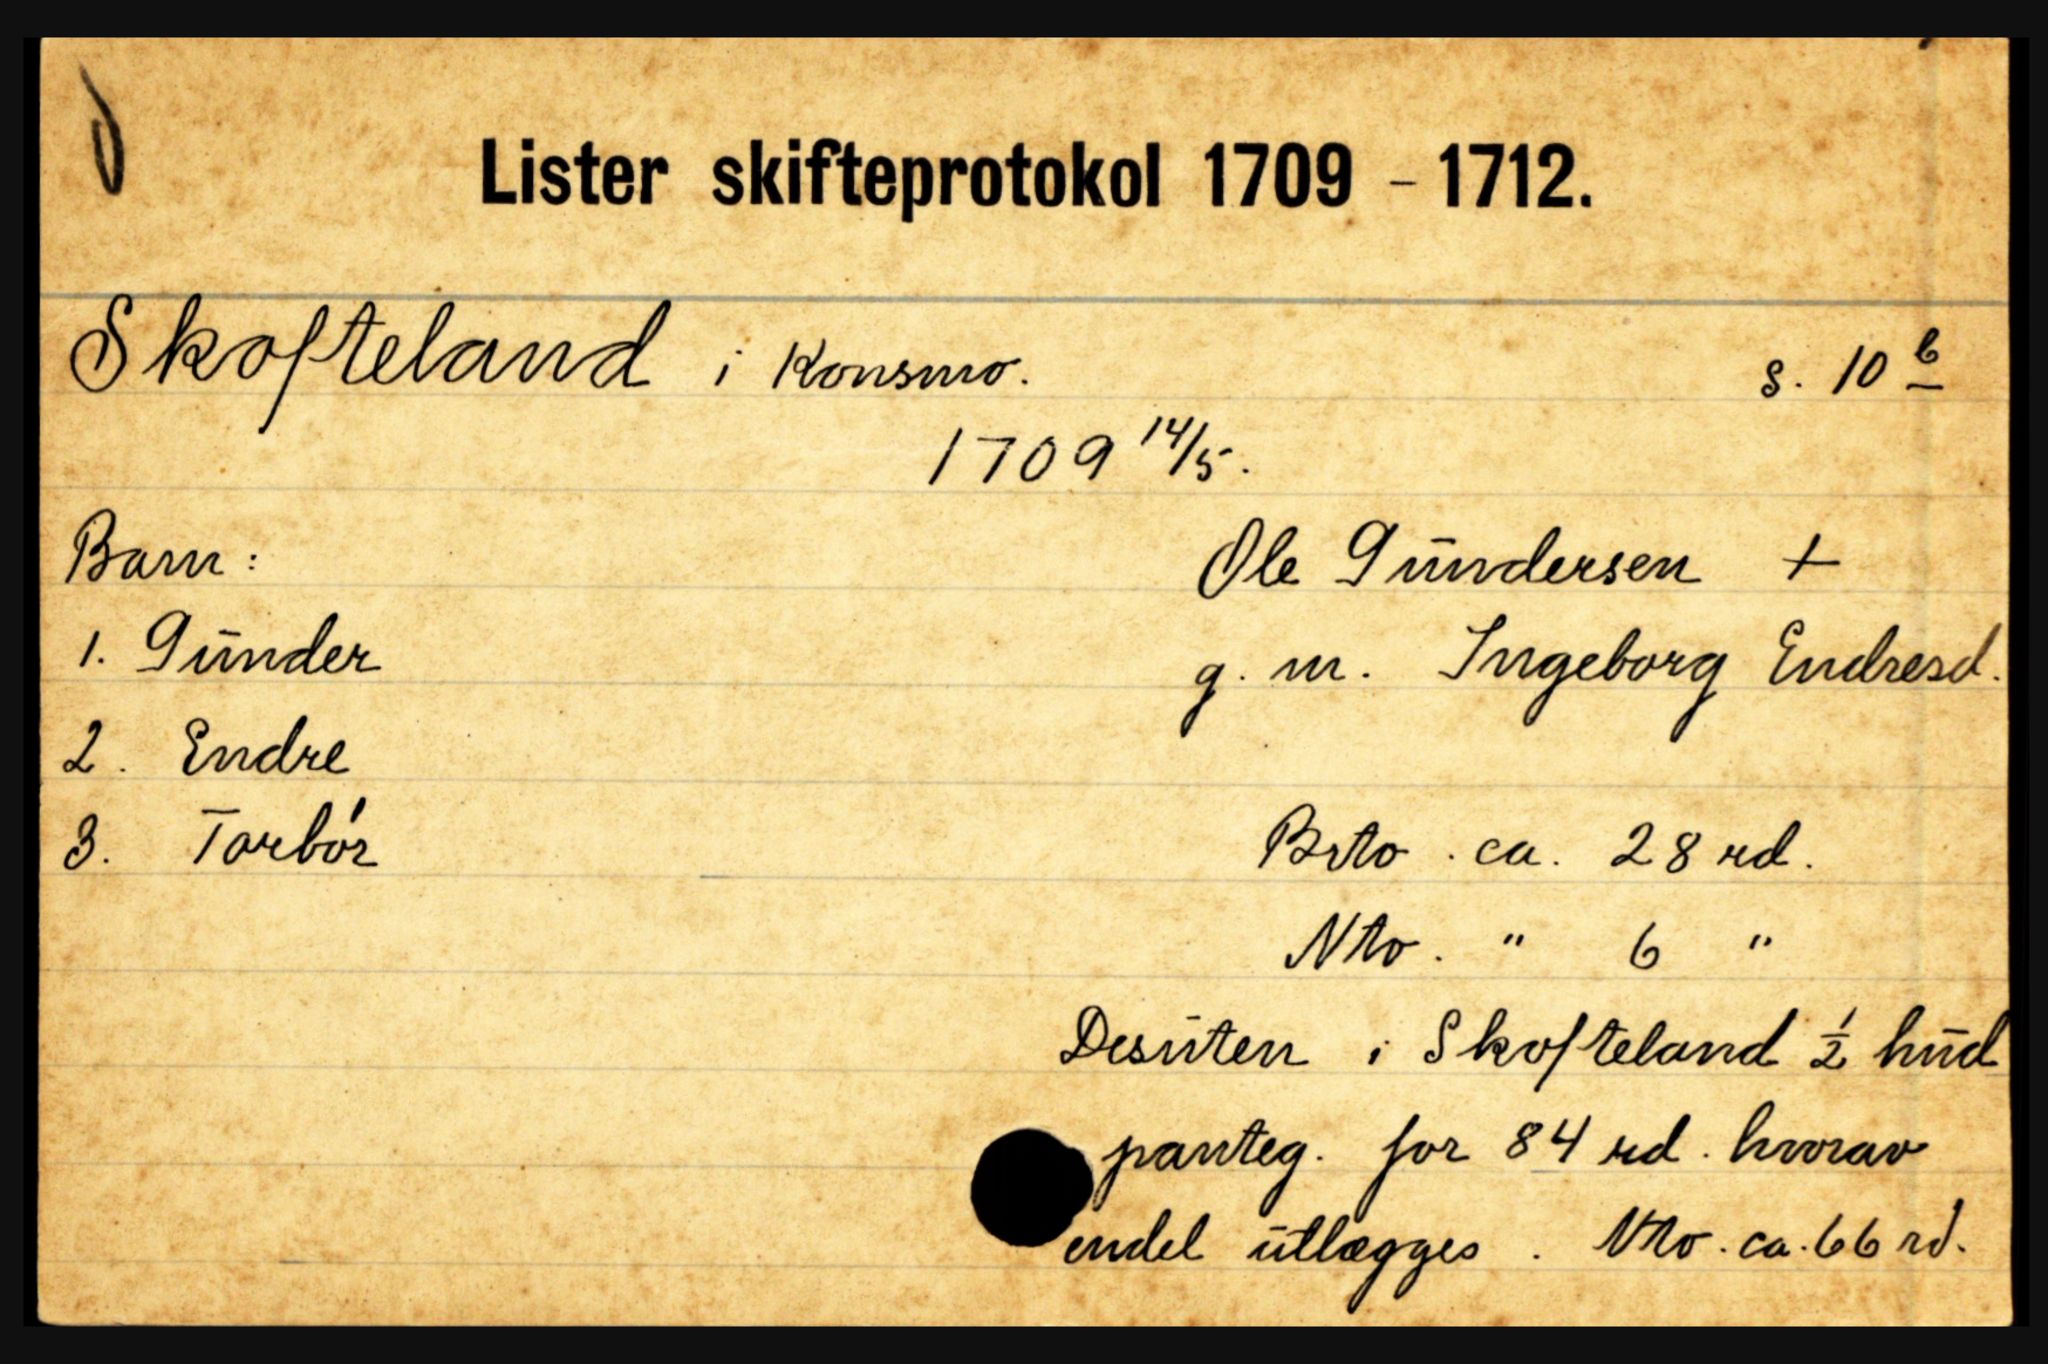 Lister skifteprotokol 1709 - 1712.
Skofteland i Konsmo. s. 10 b
1709 14/5.
Barn: Ole Gundersen +
1. Gunder g. m. Ingeborg Endresd.
2. Endre
3. Torbór Brto. ca. 28 rd.
Nto. " 6 "
Desuten i Skofteland ½ hud
panteg. for 84 rd. hvorav
endel utlægges. Nto. ca. 66 rd.